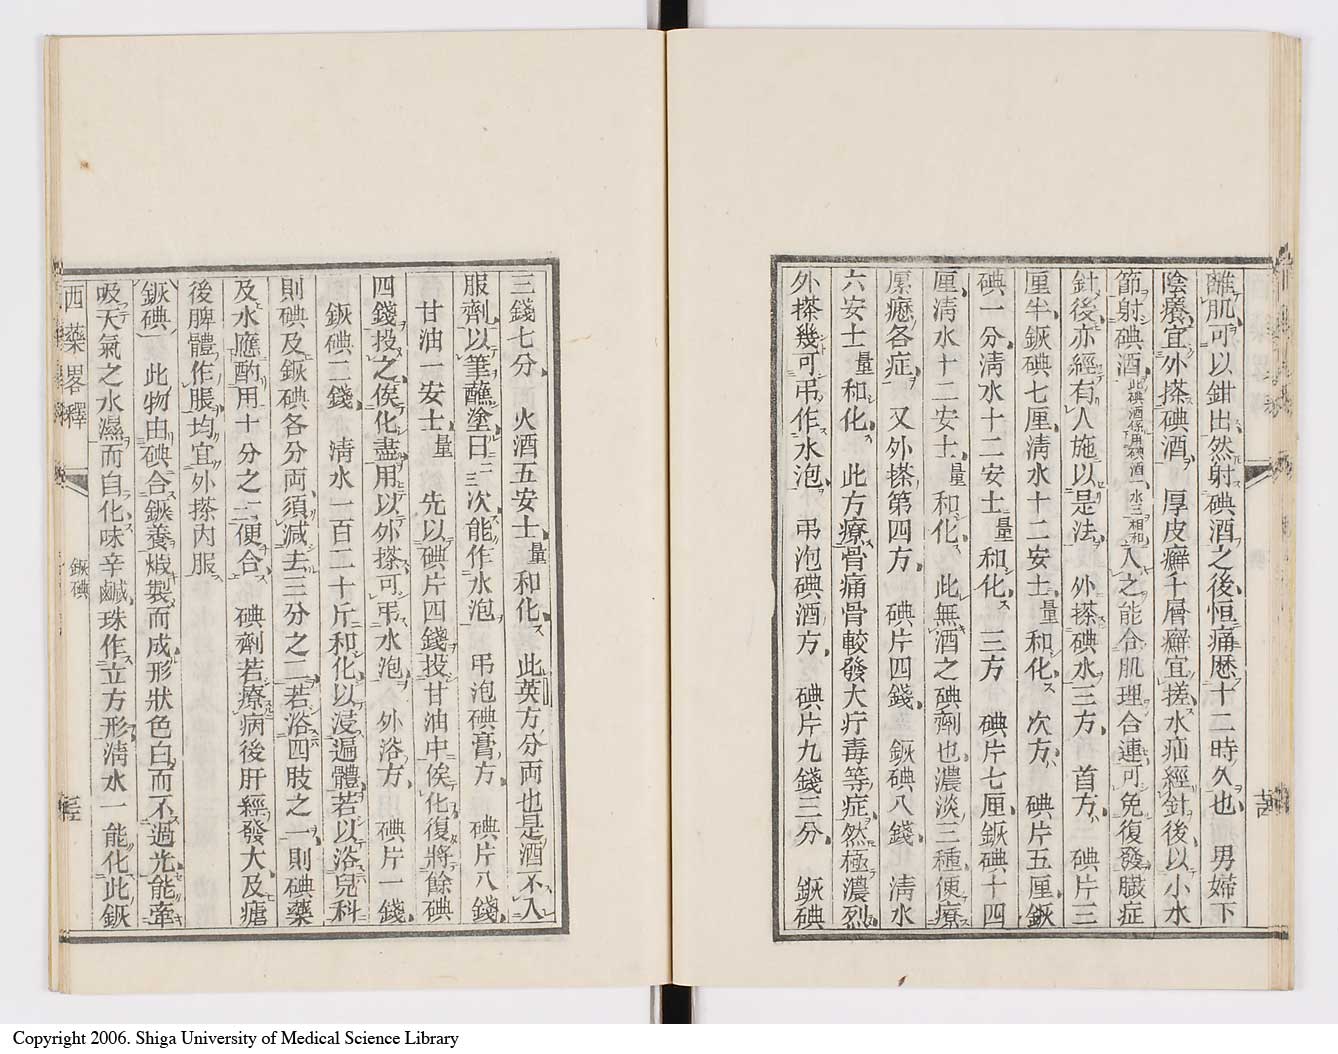 離肌可以鉗出然射碘酒之後恒痛歷十二時久也 男婦下
陰癢宜外搽碘酒 厚皮癬千層癬宜搓水疝經針後以小水
節射碘酒此碘酒係用碘酒一水三相和入之能合肌理合連可免復發臓症
針後亦經有人施以是法 外搽碘水三方 首方 碘片三
厘半鉃碘七厘淸水十二安士量和化 次方 碘片五厘鉃
碘一分淸水十二安士量和化 三方 碘片七厘鉃碘十四
厘淸水十二安士量和化 此無酒之碘劑也濃淡三種便療
瘰癧各症 又外搽第四方 碘片四錢 鉃碘八錢 淸水
六安士量和化 此方療骨痛骨較發大疔毒等症然極濃烈
外搽幾可弔作水泡 弔泡碘酒方 碘片九錢三分 鉃碘
三錢七分 火酒五安士量和化 此英方分両也是酒不入
服劑以筆蘸塗日二三次能作水泡 弔泡碘膏方 碘片八錢
甘油一安士量 先以碘片四錢投甘油中俟化復將餘碘
四錢投之俟化盡用以外搽可弔水泡 外浴方 碘片一錢
鉃碘二錢 淸水一百二十斤和化以浸遍體若以浴兒科
則碘及鉃碘各分両須減去三分之二若浴四肢之一則碘藥
及水應酌用十分之三便合 碘劑若療病後肝經發大及瘧
後脾體作脹均宜外搽內服
鉃碘 此物由碘合鉃養煆製而成形狀色白而不過光能牽
吸天氣之水濕而自化味辛鹹珠作立方形淸水一能化此鉃
西藥畧釋
鉃碘